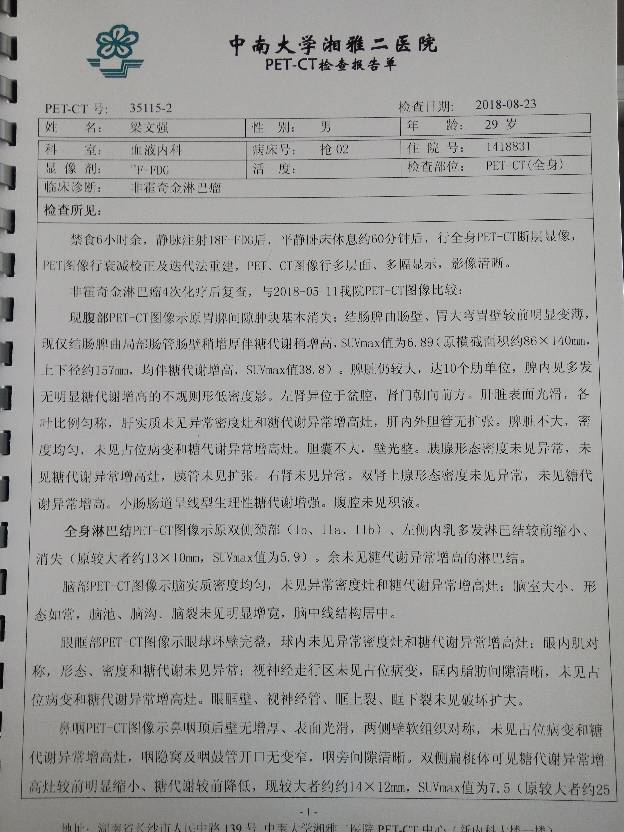 中南大学湘雅二医院
PET-CT检查报告单
PET-CT 号: 35115-2 检查日期: 2018-08-23
姓 名: 梁文强 性 别: 男 年 龄: 29 岁
科 室: 血液内科 病床号: 抢02 住 院 号: 1418831
显 像 剂: F-FDG 活 度: 检查部位: PET-CT(全身)
临床诊断: 非霍奇金淋巴瘤
检查所见:
禁食6小时余,静脉注射18F-FDG后,平静卧床休息约60分钟后,行全身PET-CT断层显像,
PET图像行衰减校正及迭代法重建,PET、CT图像行多层面、多幅显示,影像清晰。
非霍奇金淋巴瘤4次化疗后复查,与2018-05-11我院PET-CT图像比较:
现腹部PET-CT图像示原胃脾间隙肿块基本消失;结肠脾曲肠壁、胃大弯胃壁较前明显变薄,
现仅结肠脾曲局部肠管肠壁稍增厚伴糖代谢稍增高,SUVmax值为6.89(原横截面积约86×140mm,
上下径约157mm,均伴糖代谢增高,SUVmax值38.8)。脾脏仍较大,达10个肋单位,脾内见多发
无明显糖代谢增高的不规则形低密度影。左肾异位于盆腔,肾门朝向前方。肝脏表面光滑,各
叶比例匀称,肝实质未见异常密度灶和糖代谢异常增高灶,肝内外胆管无扩张。脾脏不大,密
度均匀,未见占位病变和糖代谢异常增高灶。胆囊不大,壁光整。胰腺形态密度未见异常,未
见糖代谢异常增高灶,胰管未见扩张。右肾未见异常。双肾上腺形态密度未见异常,未见糖代
谢异常增高。小肠肠道呈线型生理性糖代谢增强。腹腔未见积液。
全身淋巴结PET-CT图像示原双侧颈部(Ib、IIa、IIb)、左侧内乳多发淋巴结较前缩小、
消失(原较大者约13×10mm,SUVmax值为5.9)。余未见糖代谢异常增高的淋巴结。
脑部PET-CT图像示脑实质密度均匀,未见异常密度灶和糖代谢异常增高灶;脑室大小、形
态如常,脑池、脑沟、脑裂未见明显增宽,脑中线结构居中。
眼眶部PET-CT图像示眼球环壁完整,球内未见异常密度灶和糖代谢异常增高灶;眼内肌对
称,形态、密度和糖代谢未见异常;视神经走行区未见占位病变,眶内脂肪间隙清晰,未见占
位病变和糖代谢异常增高灶。眼眶壁、视神经管、眶上裂、眶下裂未见破坏扩大。
鼻咽PET-CT图像示鼻咽顶后壁无增厚、表面光滑,两侧壁软组织对称,未见占位病变和糖
代谢异常增高灶,咽隐窝及咽鼓管开口无变窄,咽旁间隙清晰。双侧扁桃体可见糖代谢异常增
高灶较前明显缩小、糖代谢较前降低,现较大者约约14×12mm,SUVmax值为7.5(原较大者约25
- 1 -
地址: 湖南省长沙市人民中路139号 中南大学湘雅二医院PET-CT中心(新内科大楼一楼)